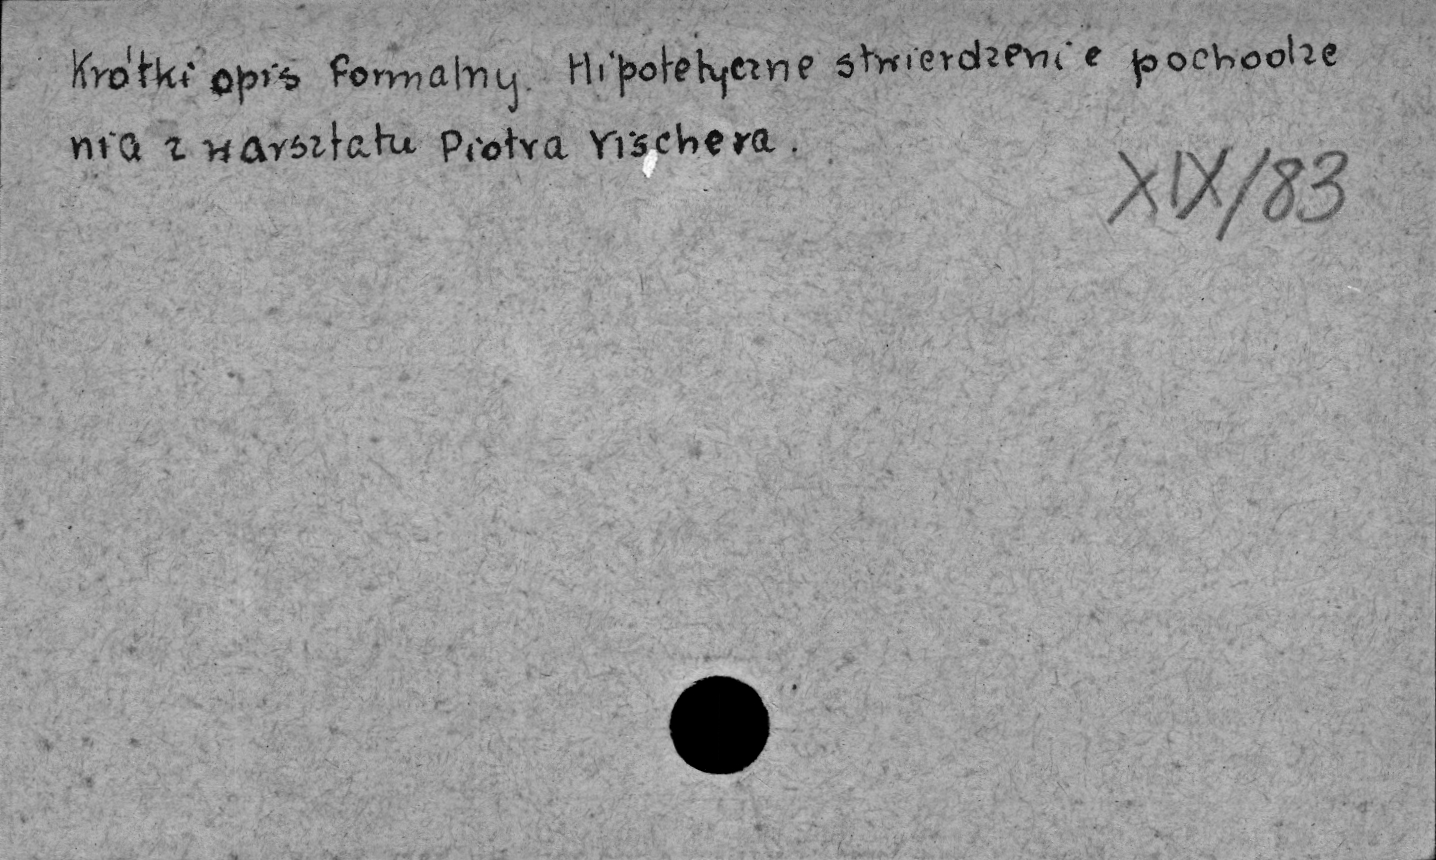 Krótki opis formalny. Hipotetyczne stwierdzenie pochodze
nia z warsztatu Piotra Vischera.
XIX/83